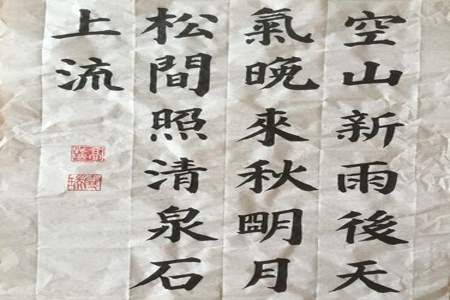 空山新雨後天
氣晚來秋朙月
松間照清泉石
上流